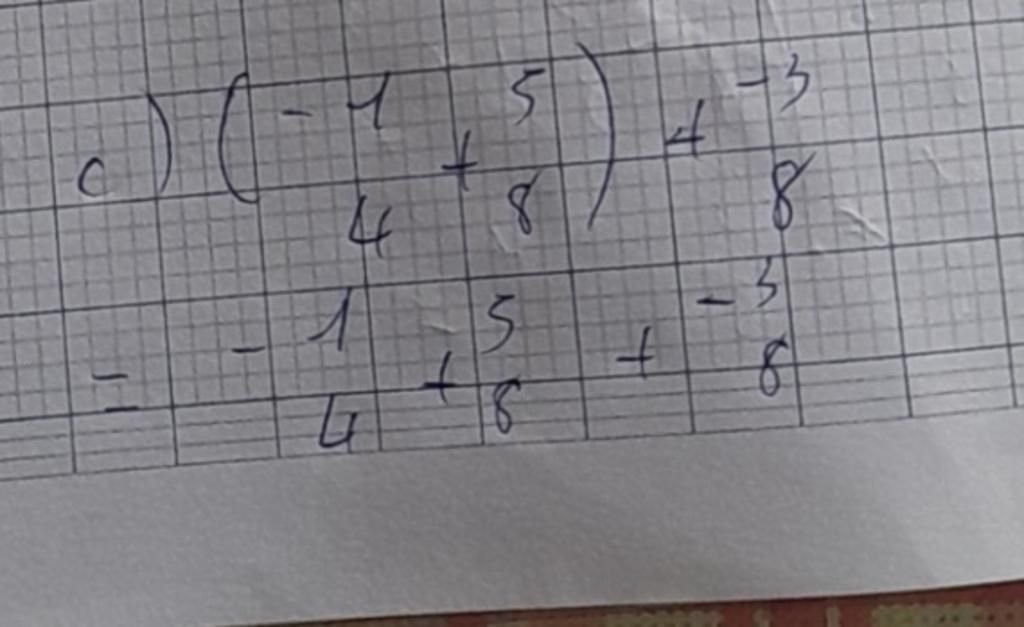 c) (-1/4 + 5/8) + -3/8
= -1/4 + 5/8 + -3/8